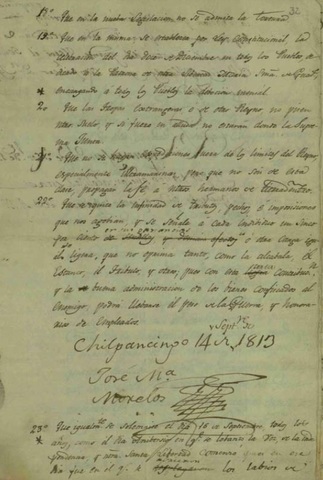 32
18.ª Que en la nueva Legislacion no se admita la Tortura.
19.ª Que en la misma se establezca por Ley Constitucional la
celebracion del dia doce de Diciembre en todos los Pueblos, de-
dicado a la Patrona de nra Libertad Maria Sma de Guadalupe,
encargando a todos los Pueblos, la devocion mensal.
20 Que las tropas Extrangeras o de otro Reyno no pisen
ntro Suelo, y si fuere en ayuda no estaran donde la Supre-
ma Junta.
21.ª Que no se hagan expediciones fuera de los limites del Reyno,
especialmente Ultramarinas, pero que no son de esta
clase, propagar la fé a ntros hermanos de tierradentro.
22.ª Que se quite la infinidad de tributos, pechos, e imposiciones
que nos agobian, y se señale a cada individuo un cinco
por ciento
u otra carga igual
ligera, que no oprima tanto, como la alcabala, el
Estanco, el Tributo, y otros, pues con esta contribucion
y la buena administracion de los bienes confiscados al
Enemigo, podrá llebarse el peso de la Guerra, y honora-
rios de empleados.
Chilpancingo 14 de Septre de 1813
José Ma
Morelos
23.ª Que igualmte se solemnize el dia 16 de Septiembre todos los
años, como el dia Anibersario en que se levanto la Voz de la Inde-
pendencia, y nra Santa Libertad Comenzo, pues en ese
dia fue en el qe se los labios de